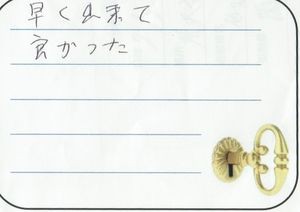 早く出来て
良かった